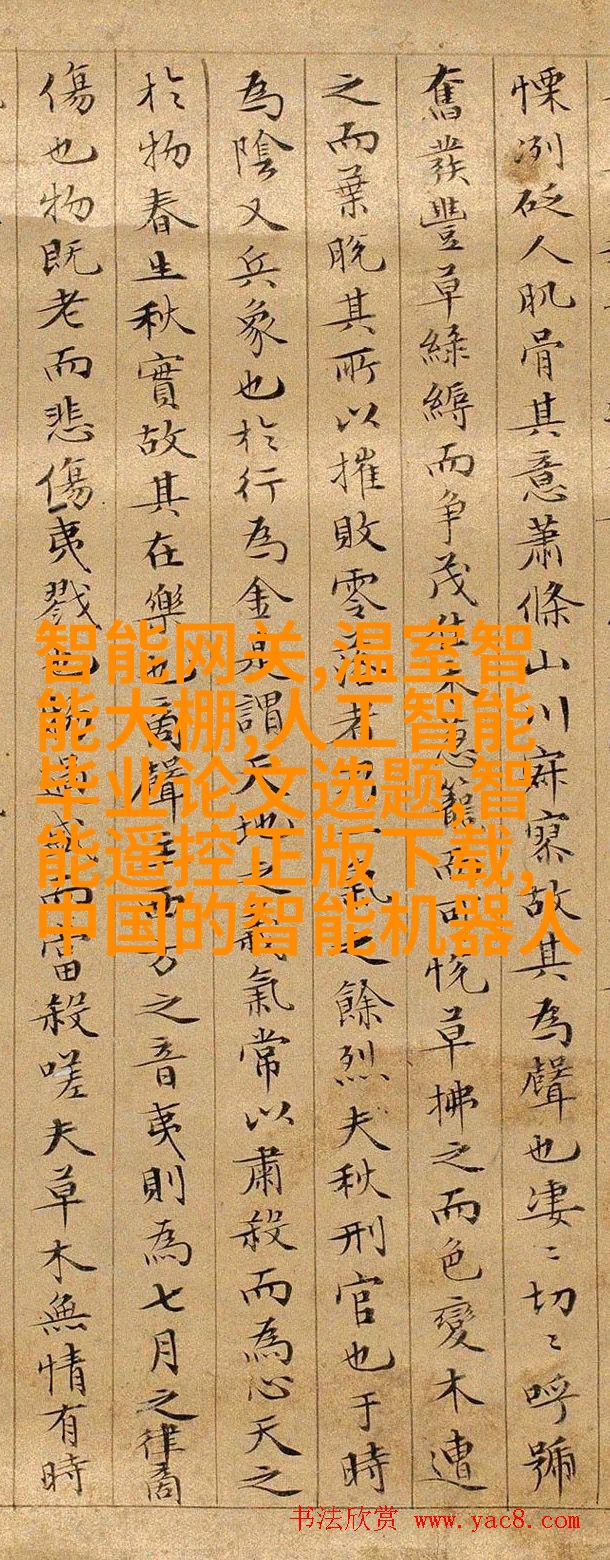 慄冽砭人肌骨其意蕭條山川寂寥故其為聲也淒〻切〻呼號
奮發豐草綠縟而争茂佳木葱籠而可悅草拂之而色變木遭
之而葉脫其所以摧敗零落者一氣之餘烈夫秋刑官也于時
為陰又兵象也於行為金是謂天地之義氣常以肅殺而為心天之
於物春生秋實故其在樂也商聲主西方之音夷則為七月之律商
傷也物既老而悲傷夷戮也物過盛而當殺嗟夫草木無情有時
智能网关,温室智
能大棚,人工智能
毕业论文选题,智
能遥控正版下载,
中国的智能机器人
书法欣赏 www.yac8.com